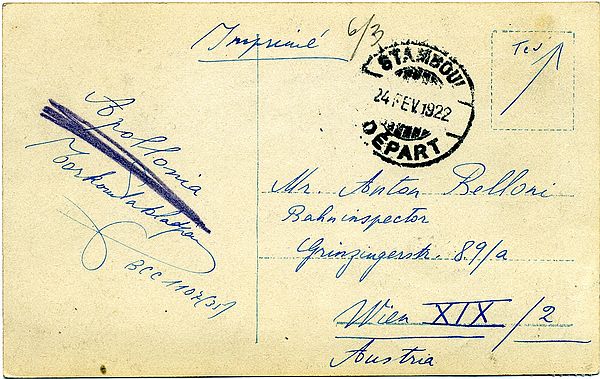 Imprimé
6/3
STAMBOUL
24 FEV. 1922
DÉPART
Apollonia
BCC 1107(35)
Mr. Anton Belloni
Bahninspector
Grinzingerstr. 89/a
Wien XIX/2
Austria